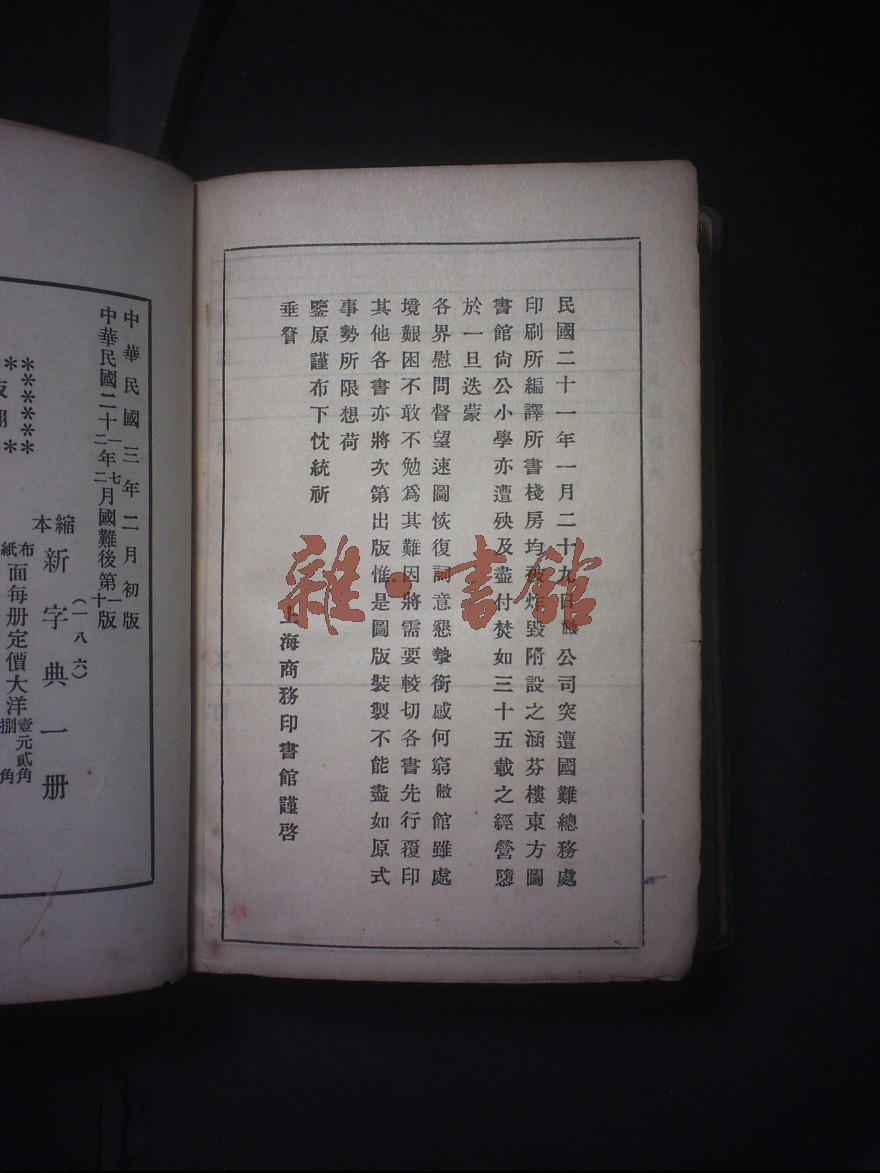 民國二十一年一月二十九日敝公司突遭國難總務處
印刷所編譯所書棧房均被炸毀附設之涵芬樓東方圖
書館尙公小學亦遭殃及盡付焚如三十五載之經營隳
於一旦迭蒙
各界慰問督望速圖恢復詞意懇摯銜感何窮敝館雖處
境艱困不敢不勉爲其難因將需要較切各書先行覆印
其他各書亦將次第出版惟是圖版裝製不能盡如原式
事勢所限想荷
鑒原謹布下忱統祈
垂詧
上海商務印書館謹啓
雜·書館
中華民國三年二月初版
中華民國二十一年七月國難後第一版
二二年二月國難後第十版
縮本新字典一册
(一八六)
布面每册定價大洋壹元貳角
紙 捌角